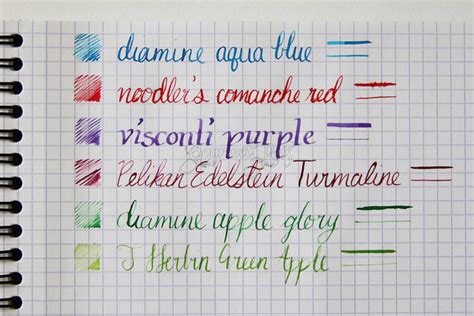 diamine aqua blue
noodler's comanche red
visconti purple
Pelikan Edelstein Turmaline
diamine apple glory
J Herbin Green Apple